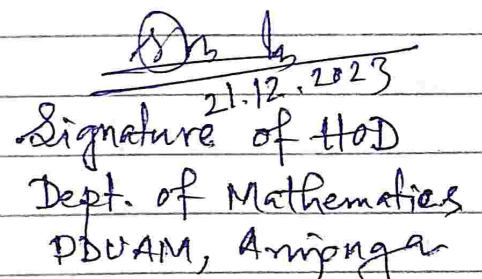 21.12.2023
Signature of HOD
Dept. of Mathematics
PDUAM, Amjonga